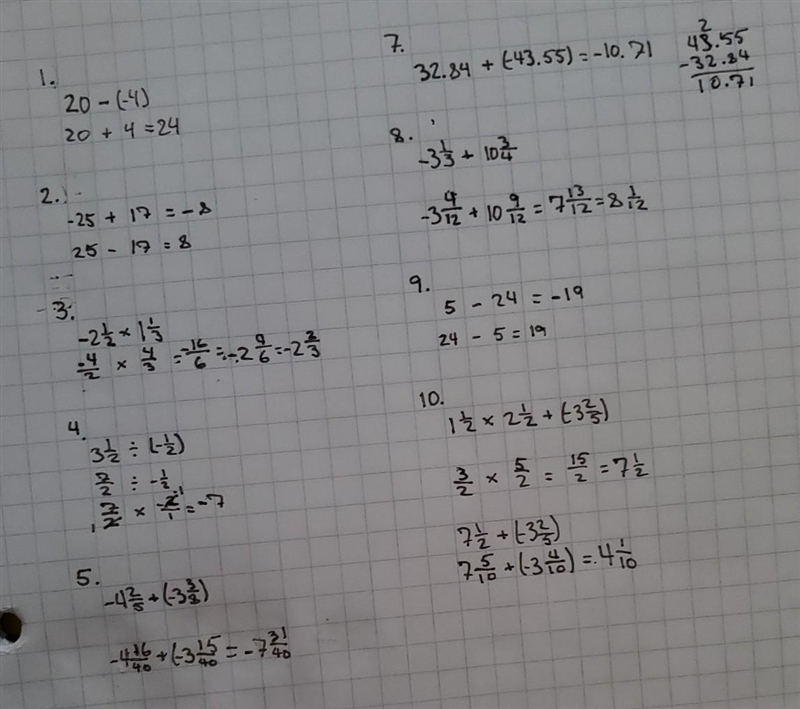 1.
20 - (-4)
20 + 4 = 24
2.
-25 + 17 = -8
25 - 17 = 8
3.
-2 1/2 × 1 1/3
-4/2 × 4/3 = -16/6 = -2 4/6 = -2 2/3
4.
3 1/2 ÷ (-1/2)
7/2 ÷ -1/2
7/2 × -2/1 = -7
5.
-4 2/5 + (-3 3/8)
-4 16/40 + (-3 15/40 = -7 31/40
7.
32.84 + (-43.55) = -10.71
2
43.55
-32.84
10.71
8.
-3 1/3 + 10 3/4
-3 4/12 + 10 9/12 = 7 13/12 = 8 1/12
9.
5 - 24 = -19
24 - 5 = 19
10.
1 1/2 × 2 1/2 + (-3 2/5)
3/2 × 5/2 = 15/2 = 7 1/2
7 1/2 + (-3 2/5)
7 5/10 + (-3 4/10) = 4 1/10